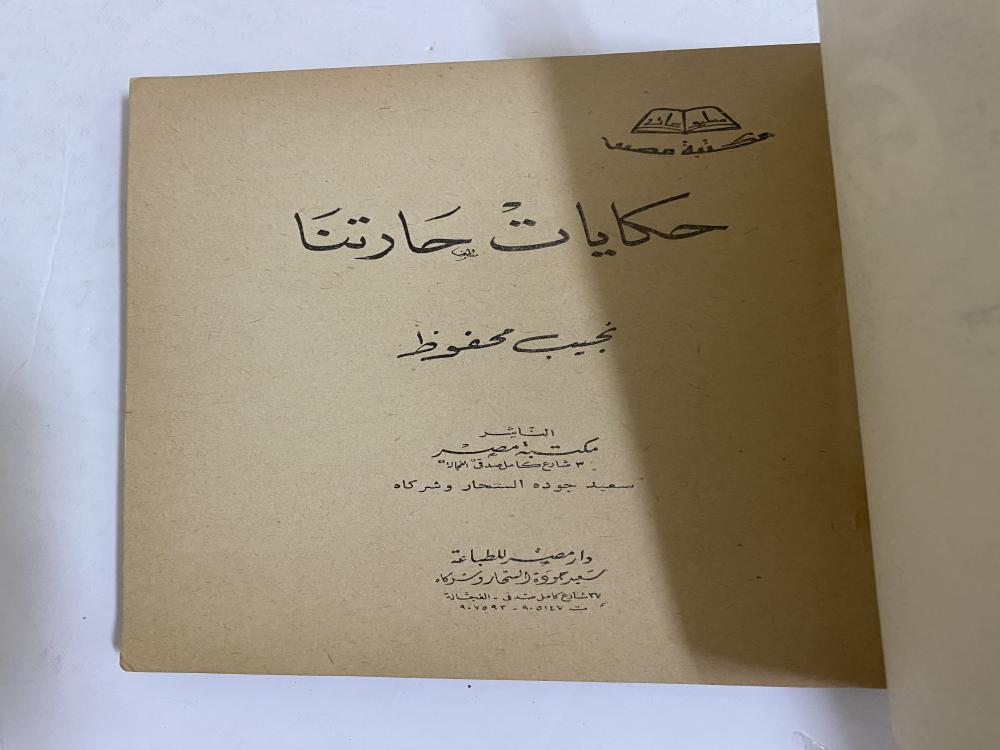 مطبوعات
مكتبة مصر
حكايات حارتنا
نجيب محفوظ
الناشر
مكتبة مصر
٣ شارع كامل صدقى "الفجالة"
سعيد جوده السحار وشركاه
دار مصر للطباعة
سعيد جودة السحار وشركاه
٣٧ شارع كامل صدقى - الفجالة
ت ٩٠٥١٤٧ - ٩٠٧٥٩٣